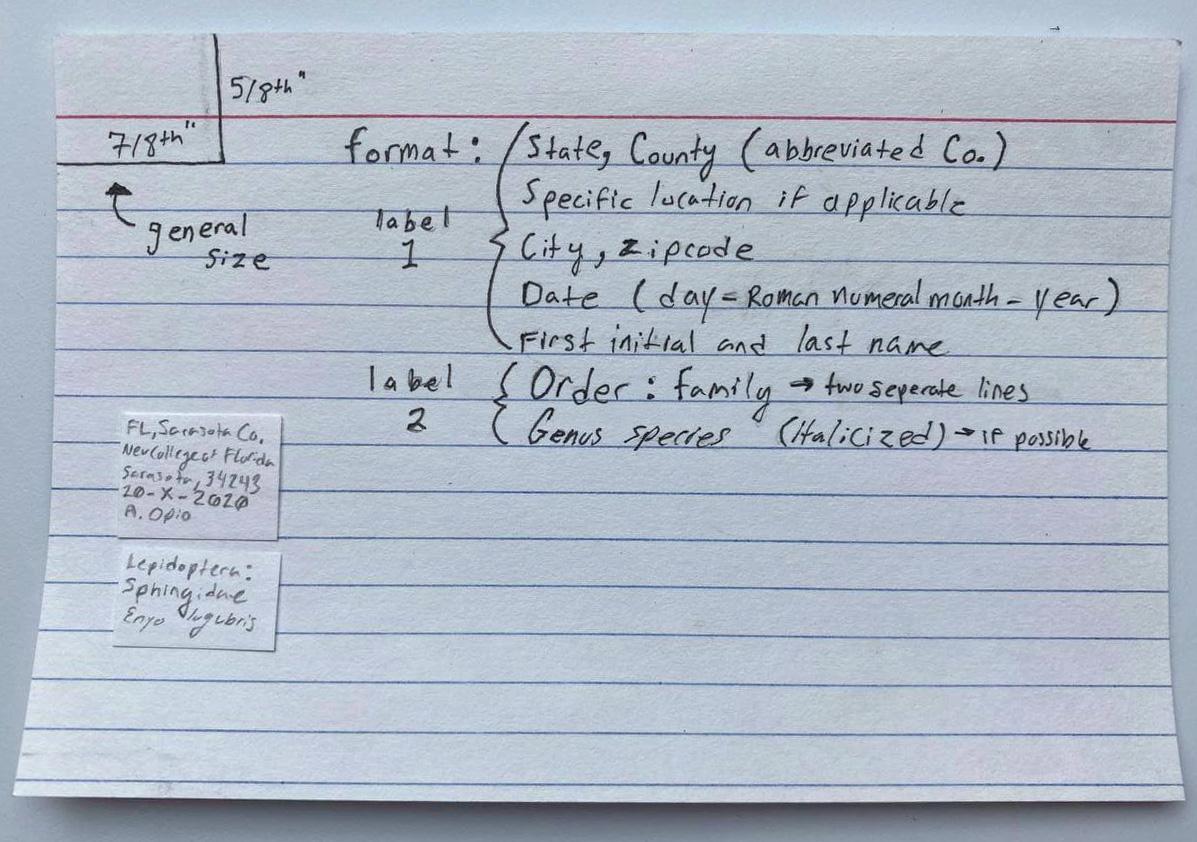 5/8th"
7/8th"
general
size
format:
label
1
State, County (abbreviated Co.)
Specific location if applicable
City, zipcode
Date (day-Roman numeral month-year)
First initial and last name
label
2
Order: family → two seperate lines
Genus species (italicized) → if possible
FL, Sarasota Co.
New College of Florida
Sarasota, 34243
20-X-2020
A. Opio
Lepidoptera:
Sphingidae
Enyo lugubris